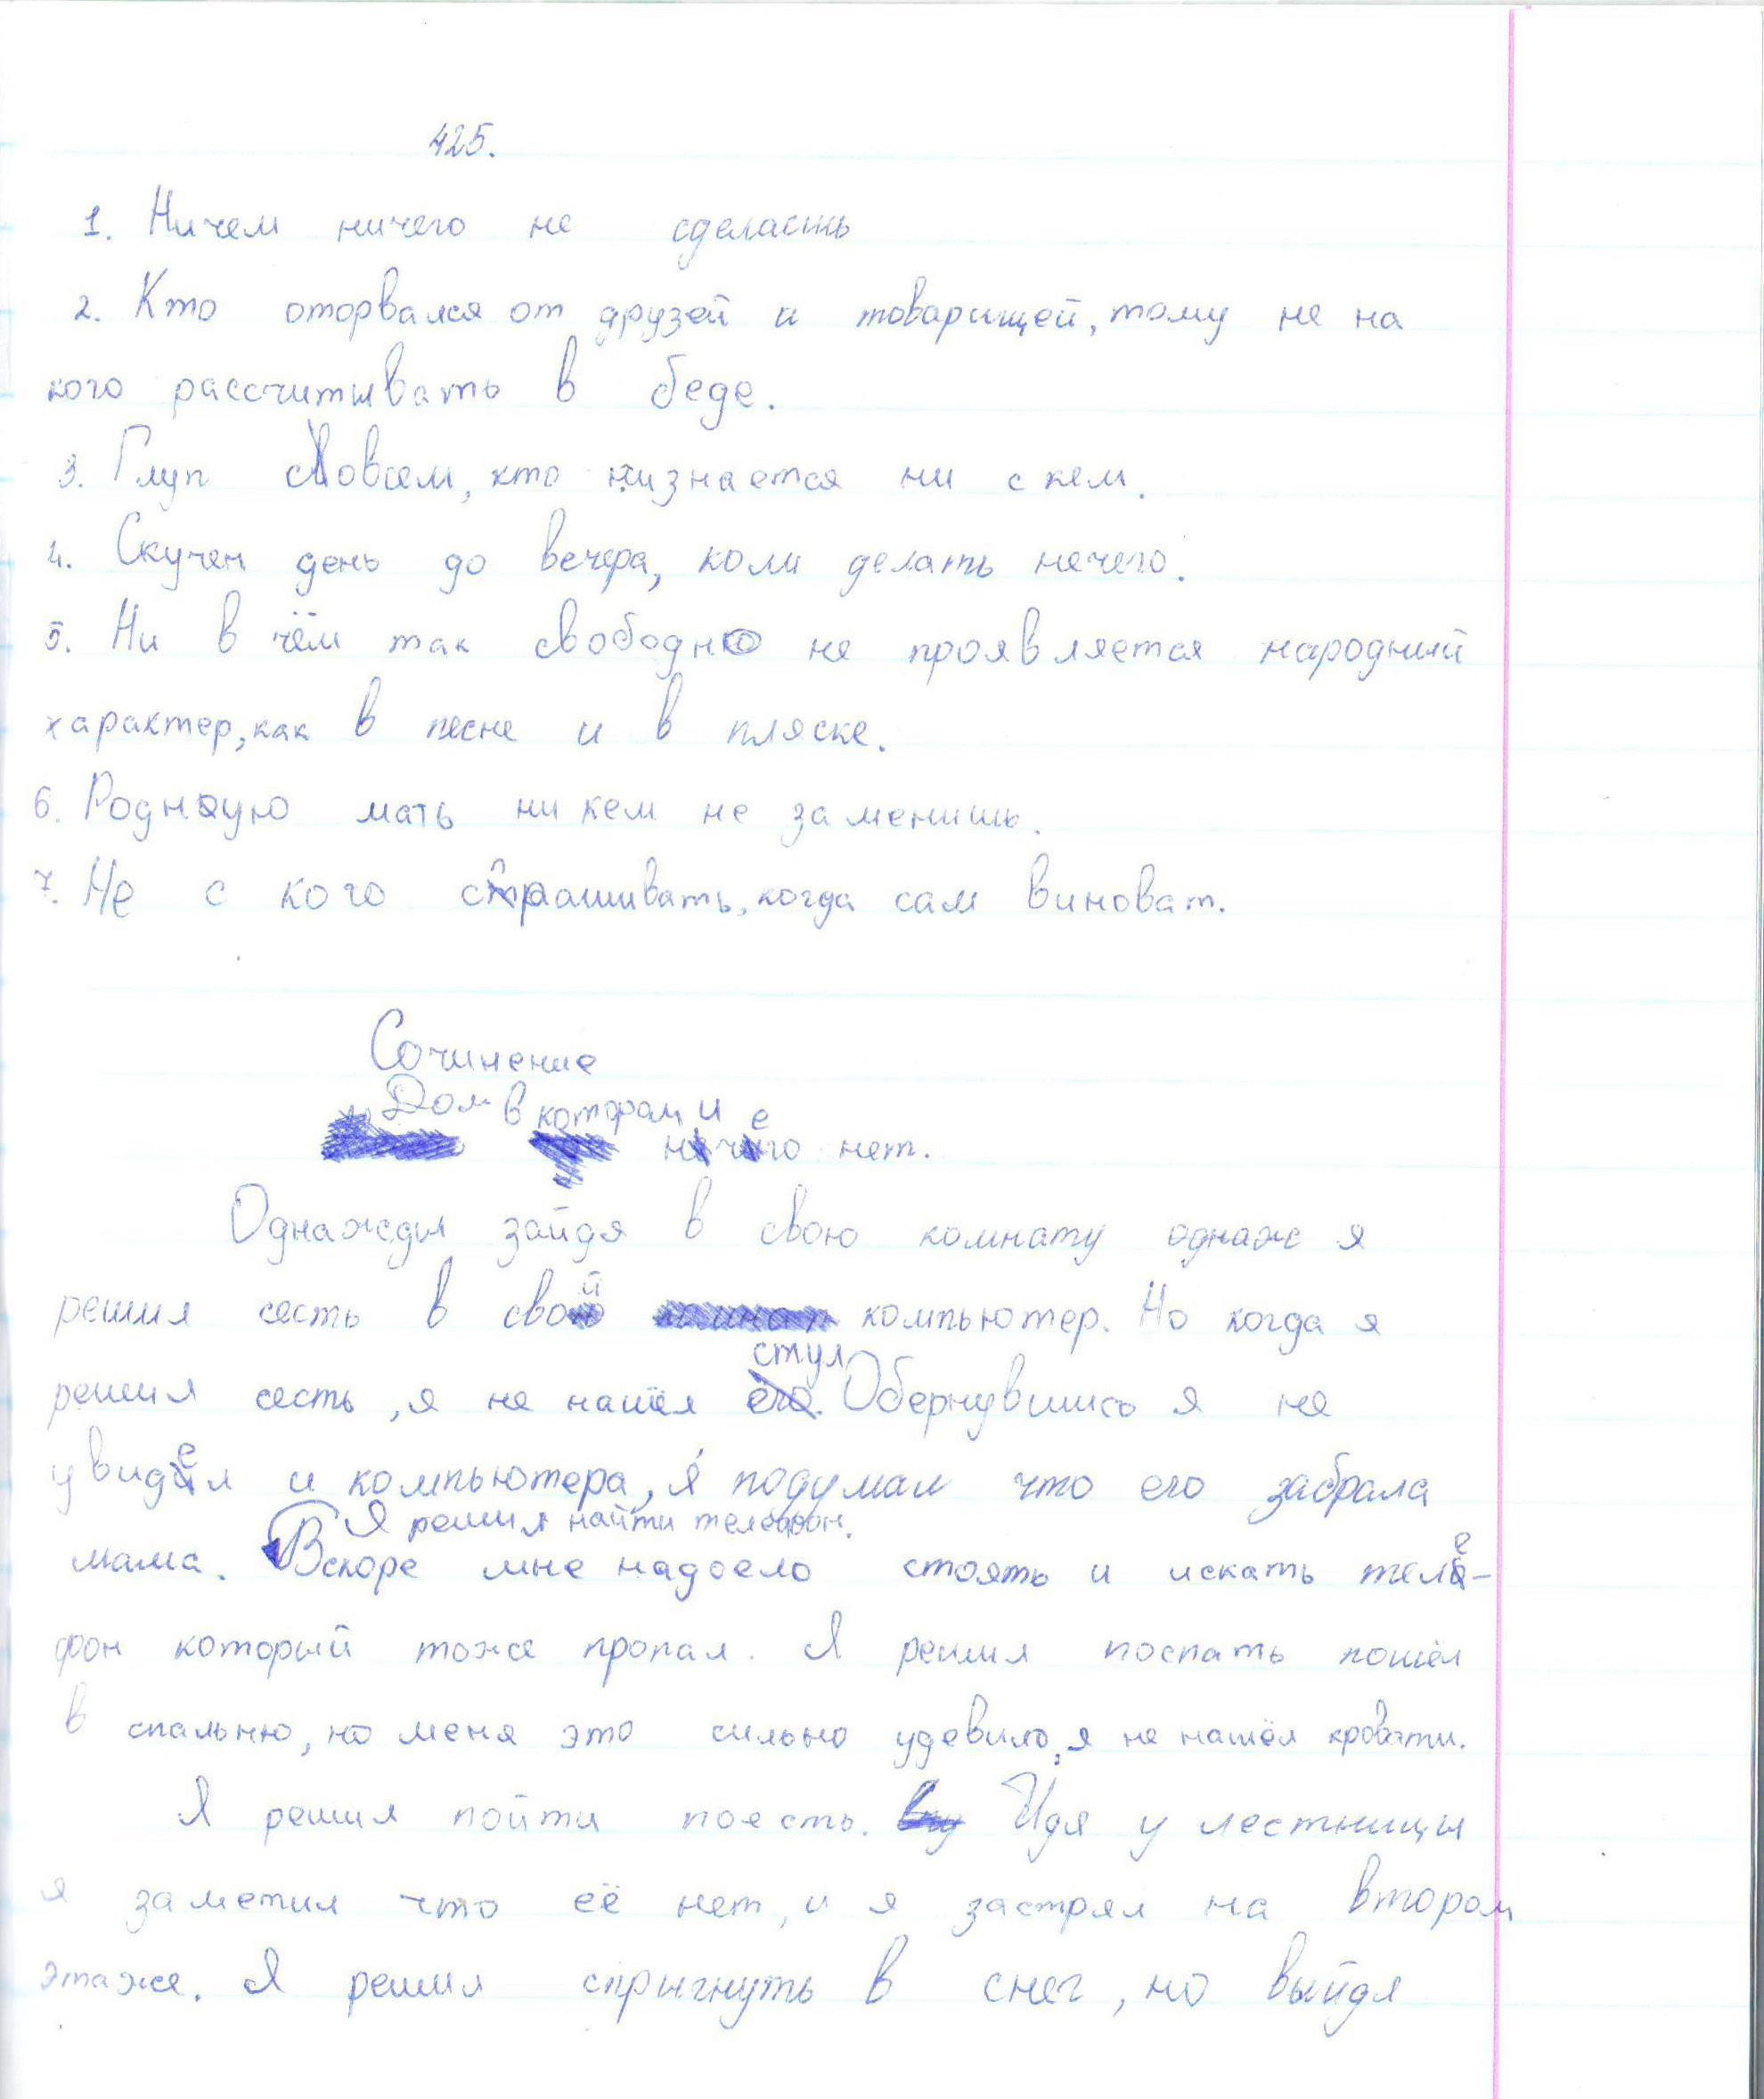 425.
1. Ничем ничего не сделасть
2. Кто оторвался от друзей и товарищей, тому не на
кого рассчитывать в беде.
3. Глуп совсем, кто низнается ни с кем.
4. Скучен день до вечера, коли делать нечего.
5. Ни в чём так свободно не проявляется народний
характер, как в песне и в пляске.
6. Родную мать ни кем не заменишь.
7. Не с кого спрашивать, когда сам виноват.
Сочинение
Дом в котором
ничего нет.
Однажды зайдя в свою комнату однаж я
решил сесть в свой компьютер. Но когда я
стул
решил сесть, я не нашёл его. Обернувшись я не
увидел и компьютера, я подумал что его забрала
Я решил найти телефон.
мама. Вскоре мне надоело стоять и искать теле-
фон который тоже пропал. Я решил поспать пошёл
в спальню, но меня это сильно удевило, я не нашёл кровати.
Я решил пойти поесть. Идя у лестницы
я заметил что её нет, и я застрял на втором
этаже. Я решил спрыгнуть в снег, но выйдя